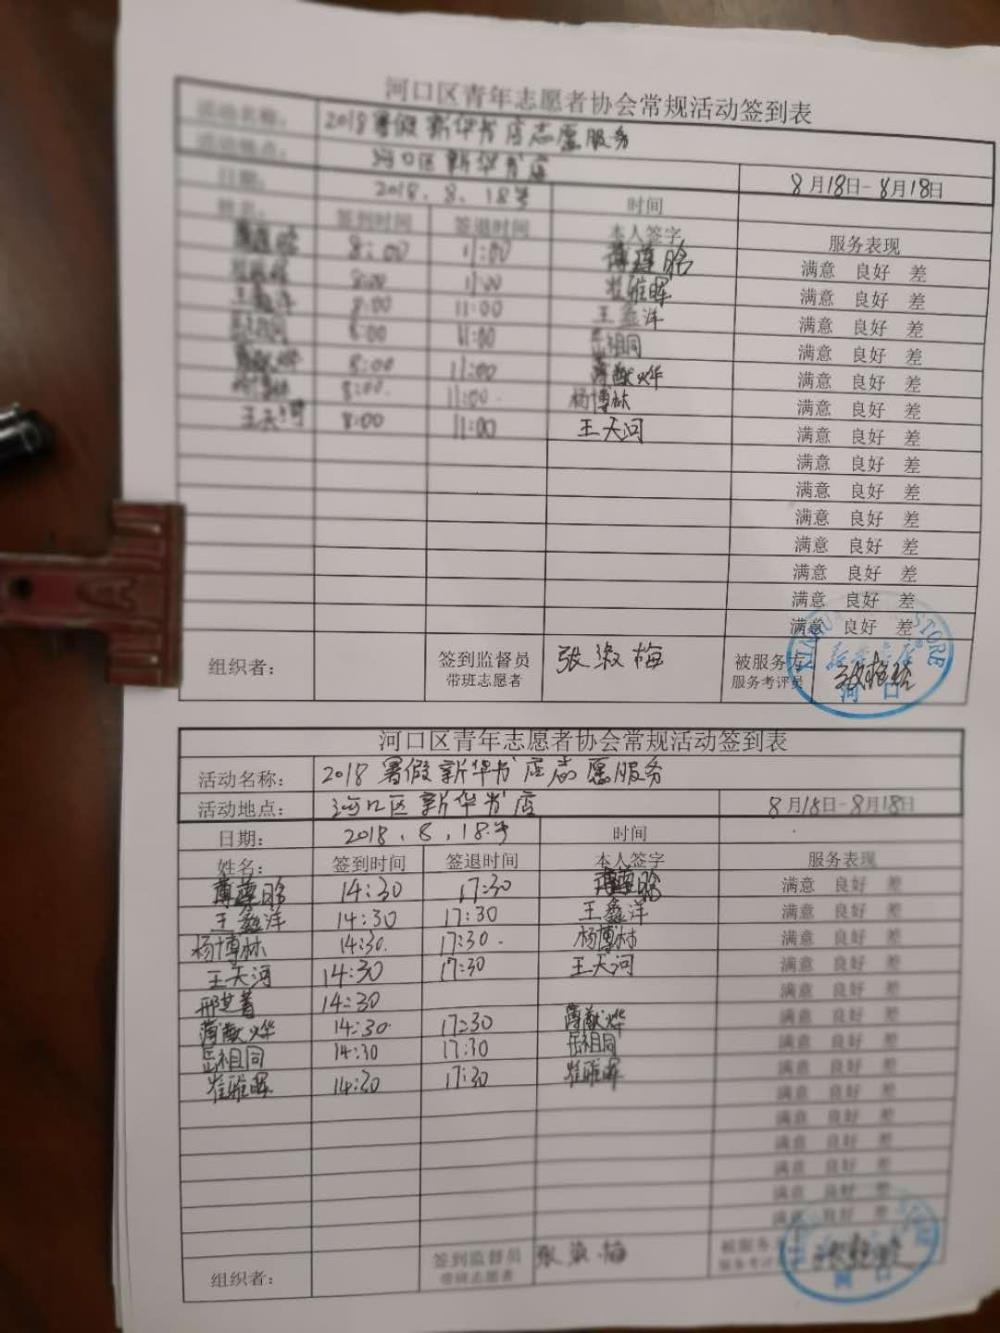 河口区青年志愿者协会常规活动签到表
活动名称： 2018暑假新华书店志愿服务
活动地点： 河口区新华书店 8月18日-8月18日
日期： 2018.8.18号 时间
姓名： 签到时间 签退时间 本人签字 服务表现
8:00 11:00 满意 良好 差
8:00 11:00 崔雅晖 满意 良好 差
王鑫洋 8:00 11:00 王鑫洋 满意 良好 差
岳祖同 8:00 11:00 岳祖同 满意 良好 差
8:00 11:00 薄猷烨 满意 良好 差
杨博林 8:00. 11:00. 杨博林 满意 良好 差
王天河 8:00 11:00 王天河 满意 良好 差
满意 良好 差
满意 良好 差
满意 良好 差
满意 良好 差
满意 良好 差
满意 良好 差
满意 良好 差
组织者： 签到监督员 张淑梅 被服务方
带班志愿者 服务考评员
STORE
新华书店
河口
河口区青年志愿者协会常规活动签到表
活动名称： 2018暑假新华书店志愿服务
活动地点： 河口区新华书店 8月18日-8月18日
日期： 2018.8.18号 时间
姓名： 签到时间 签退时间 本人签字 服务表现
14:30 17:30 满意 良好 差
王鑫洋 14:30 17:30 王鑫洋 满意 良好 差
杨博林 14:30. 17:30. 杨博林 满意 良好 差
王天河 14:30 17:30 王天河 满意 良好 差
14:30 满意 良好 差
薄猷烨 14:30 17:30 薄猷烨 满意 良好 差
岳祖同 14:30 17:30 岳祖同 满意 良好 差
崔雅晖 14:30 17:30 崔雅晖 满意 良好 差
满意 良好 差
满意 良好 差
满意 良好 差
满意 良好 差
满意 良好 差
良好 差
组织者： 签到监督员 张淑梅 被服务
带班志愿者 服务考评
河口